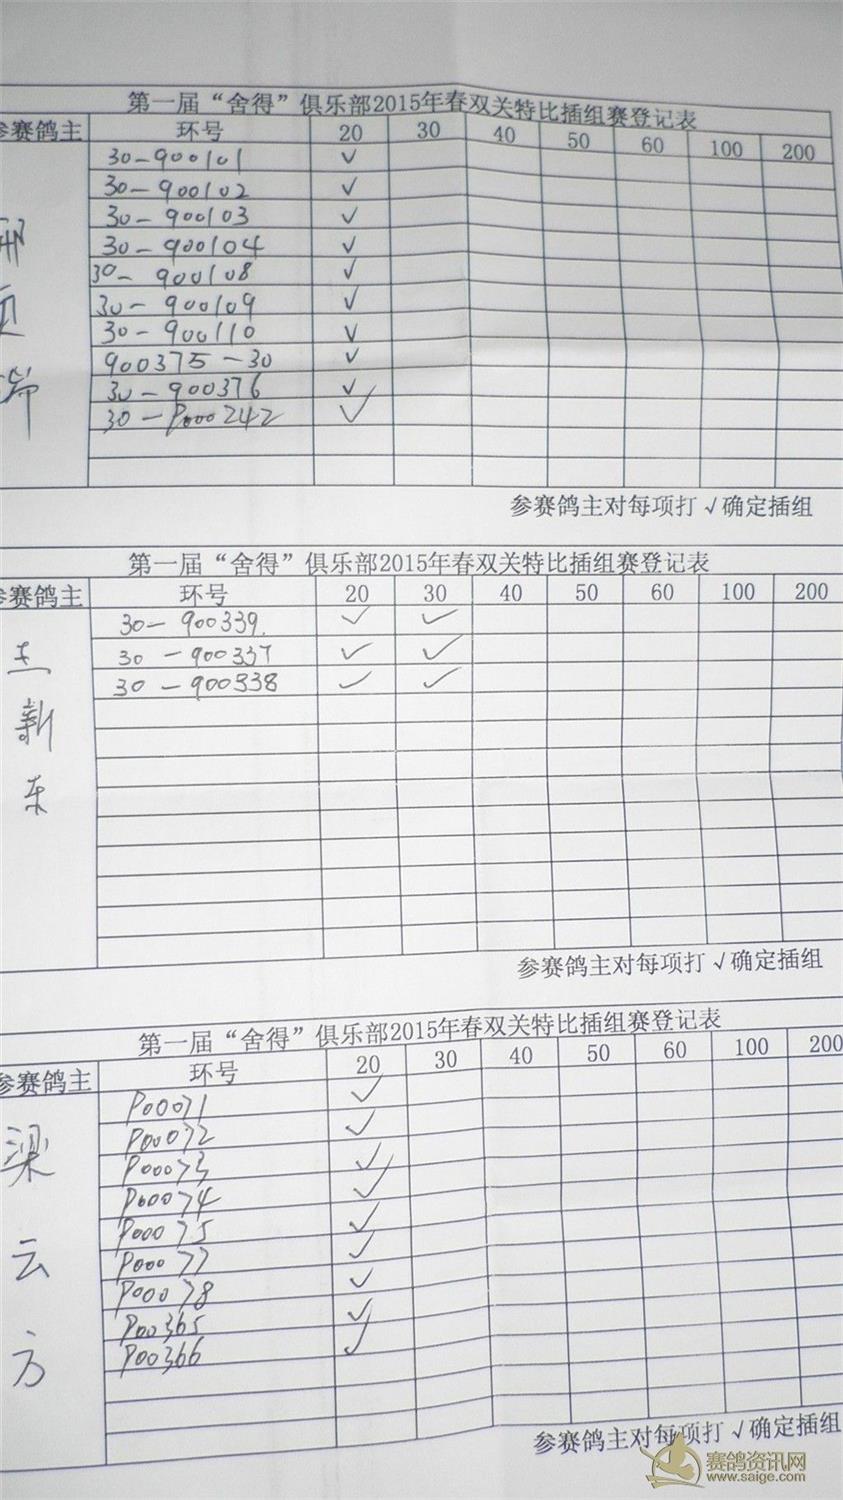 第一届“舍得”俱乐部2015年春双关特比插组赛登记表
参赛鸽主 环号 20 30 40 50 60 100 200
30-900101 √
30-900102 √
30-900103 √
30-900104 √
30-900108 √
30-900109 √
30-900110 √
900375-30 √
30-900376 √
30-P000242 √
参赛鸽主对每项打√确定插组
第一届“舍得”俱乐部2015年春双关特比插组赛登记表
参赛鸽主 环号 20 30 40 50 60 100 200
新东
30-900339. √ √
30-900337 √ √
30-900338 √ √
参赛鸽主对每项打√确定插组
第一届“舍得”俱乐部2015年春双关特比插组赛登记表
参赛鸽主 环号 20 30 40 50 60 100 200
梁云方
P00071 √
P00072 √
P00073 √
P00074 √
P00075 √
P00077 √
P00078 √
P00365 √
P00366 √
参赛鸽主对每项打√确定插组
赛鸽资讯网
www.saige.com